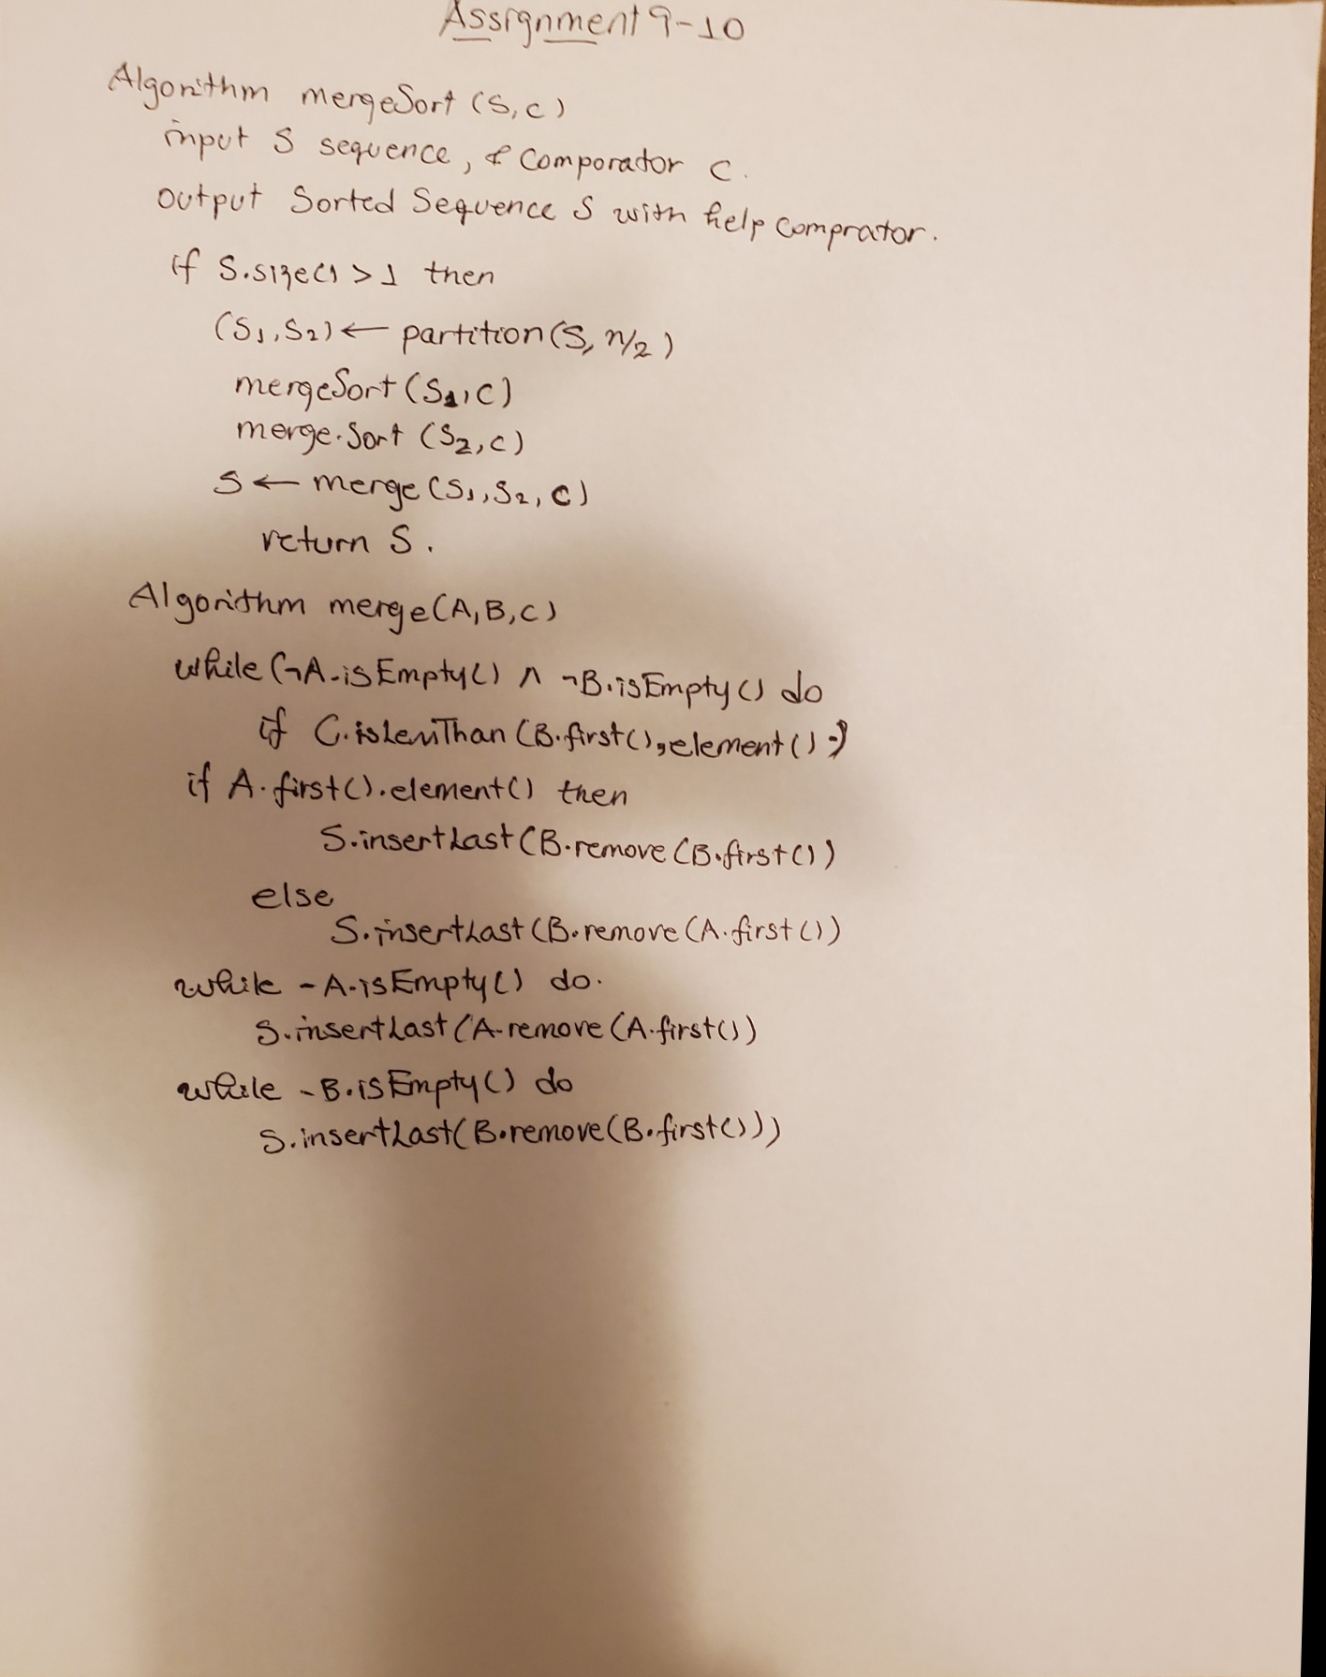 Assignment 9-10
Algorithm mergeSort (S,C)
input S sequence, & Comporator C.
output Sorted Sequence S with help comprator.
if S.size() > 1 then
(S1,S2) ← partition(S, n/2)
mergeSort (S1,C)
merge.Sort (S2,C)
S ← merge (S1,S2,C)
return S.
Algorithm merge(A,B,C)
while (¬A.isEmpty() ∧ ¬B.isEmpty() do
if C.isLessThan (B.first(),element())
if A.first().element() then
S.insertLast(B.remove(B.first())
else
S.insertLast(B.remove(A.first())
while -A.isEmpty() do.
S.insertLast(A.remove(A.first())
while -B.isEmpty() do
S.insertLast(B.remove(B.first()))